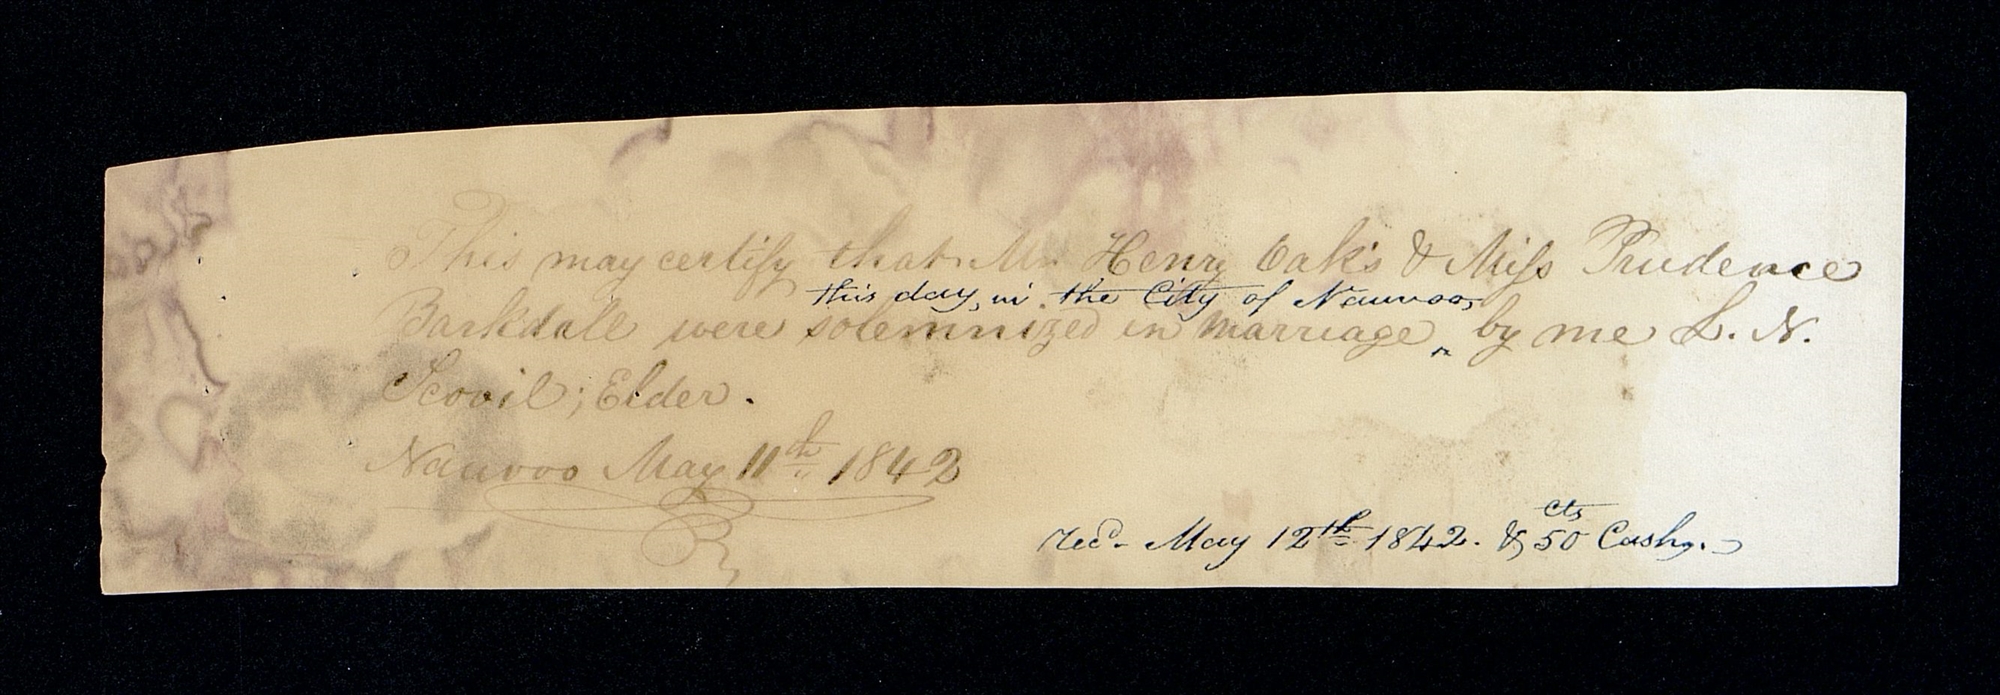 This may certify that Mr. Henry Oaks & Miſs Prudence
this day, in the City of Nauvoo,
Barkdall were solemnized in marriage ‸ by me L. N.
Scovil; Elder.
Nauvoo May 11th 1842
cts
Recd. May 12th 1842. & 50 Cash.